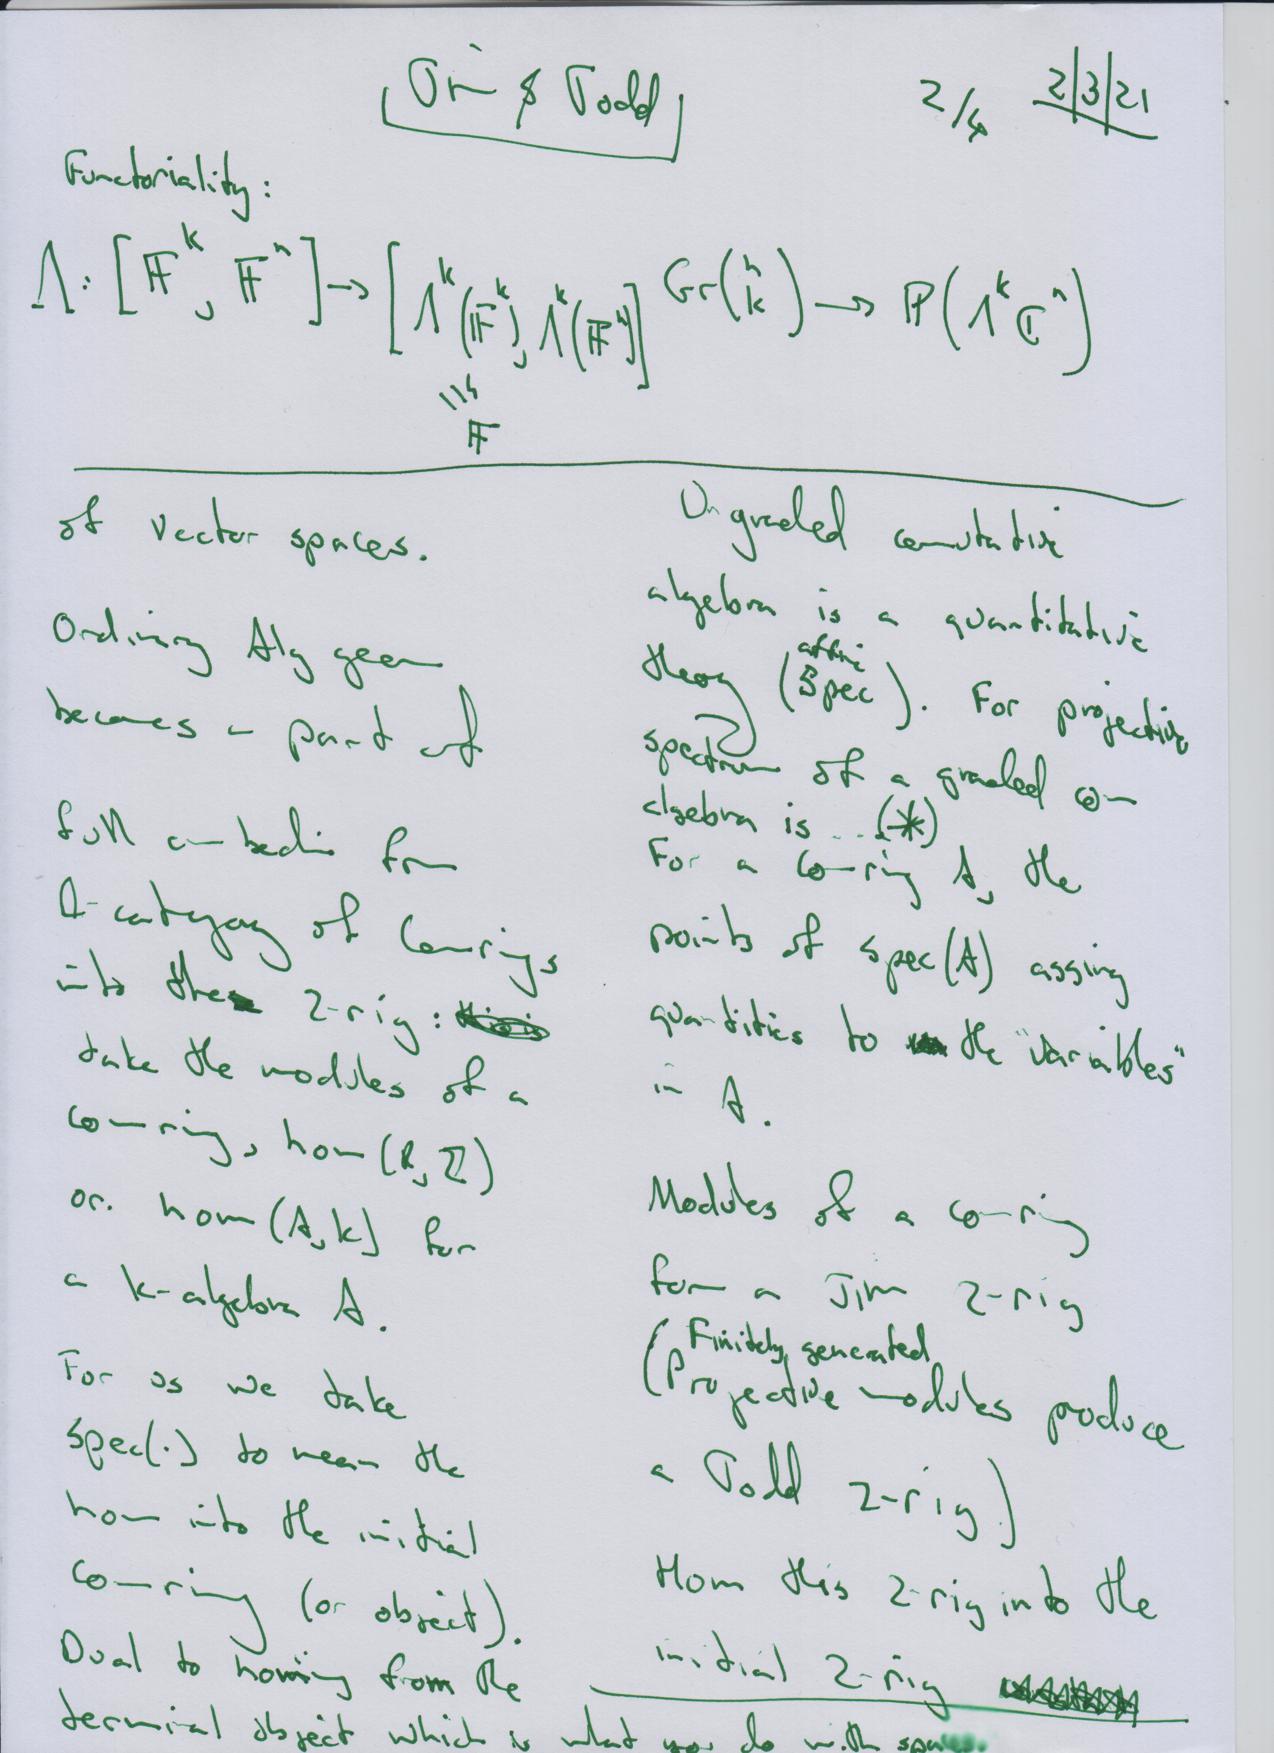 Jim & Todd
2/4 2|3|21
Functoriality:
Λ: [𝔽^k, 𝔽^n] → [Λ^k(𝔽^k), Λ^k(𝔽^n)] Gr(n k) → ℙ(Λ^k ℂ^n)
𝔽
of vector spaces.
Ordinary Alg geom
becomes a part of
full embedin from
2-category of Comrings
into the 2-rig:
take the modules of a
comring, hom(R, ℤ)
or. hom(A, k) for
a k-algebra A.
For us we take
spec(·) to mean the
hom into the initial
com-ring (or object).
Dual to homing from the
terminal object which is what you do with spaces.
Ungraded commutative
algebra is a quantitative
affine
theory (Spec). For projective
spectrum of a graded com
algebra is ... (*)
For a com-ring A, the
points of spec(A) assing
quantities to the "variables"
in A.
Modules of a com-ring
form a Jim 2-rig
Finitely generated
(Projective modules produce
a Todd 2-rig.)
Hom this 2-rig into the
initial 2-rig